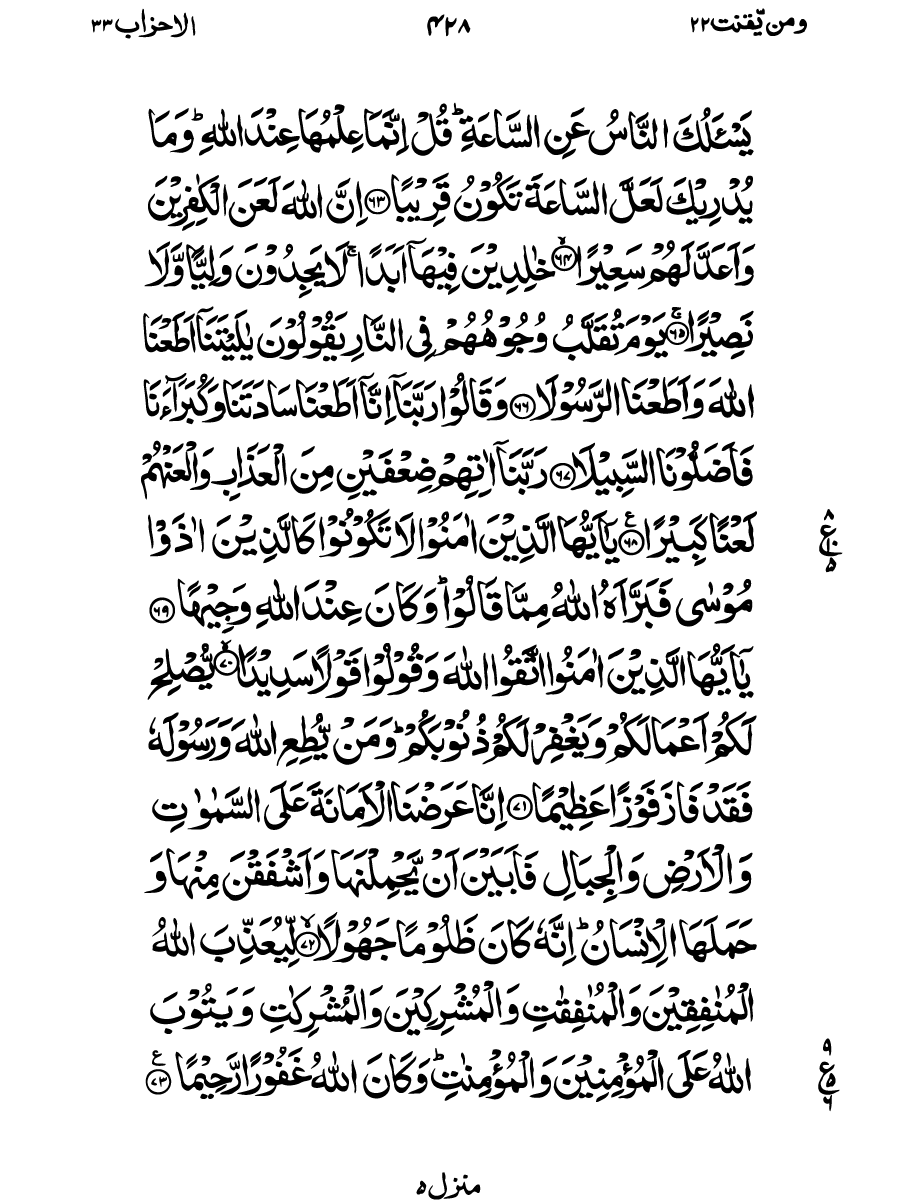 ومن يّقنت ٢٢ ٤٢٨ الاحزاب ٣٣
يَسْـَٔلُكَ النَّاسُ عَنِ السَّاعَةِ ؕ قُلْ اِنَّمَا عِلْمُهَا عِنْدَ اللهِ ؕ وَمَا
يُدْرِيْكَ لَعَلَّ السَّاعَةَ تَكُوْنُ قَرِيْبًا ﴿۶۳﴾ اِنَّ اللهَ لَعَنَ الْكٰفِرِيْنَ
وَاَعَدَّ لَهُمْ سَعِيْرًا ﴿۶۴﴾ۙ خٰلِدِيْنَ فِيْهَاۤ اَبَدًا ۚ لَا يَجِدُوْنَ وَلِيًّا وَّلَا
نَصِيْرًا ﴿۶۵﴾ۚ يَوْمَ تُقَلَّبُ وُجُوْهُهُمْ فِى النَّارِ يَقُوْلُوْنَ يٰلَيْتَنَاۤ اَطَعْنَا
اللهَ وَاَطَعْنَا الرَّسُوْلَا ﴿۶۶﴾ وَقَالُوْا رَبَّنَاۤ اِنَّاۤ اَطَعْنَا سَادَتَنَا وَكُبَرَآءَنَا
فَاَضَلُّوْنَا السَّبِيْلَا ﴿۶۷﴾ رَبَّنَاۤ اٰتِهِمْ ضِعْفَيْنِ مِنَ الْعَذَابِ وَالْعَنْهُمْ
لَعْنًا كَبِيْرًا ﴿۶۸﴾ؑ يٰۤاَيُّهَا الَّذِيْنَ اٰمَنُوْا لَا تَكُوْنُوْا كَالَّذِيْنَ اٰذَوْا
۸ ع ۱۰ ۵
مُوْسٰى فَبَرَّاَهُ اللهُ مِمَّا قَالُوْا ؕ وَكَانَ عِنْدَ اللهِ وَجِيْهًا ﴿۶۹﴾
يٰۤاَيُّهَا الَّذِيْنَ اٰمَنُوا اتَّقُوا اللهَ وَقُوْلُوْا قَوْلًا سَدِيْدًا ﴿۷۰﴾ۙ يُّصْلِحْ
لَكُمْ اَعْمَالَكُمْ وَيَغْفِرْ لَكُمْ ذُنُوْبَكُمْ ؕ وَمَنْ يُّطِعِ اللهَ وَرَسُوْلَهٗ
فَقَدْ فَازَ فَوْزًا عَظِيْمًا ﴿۷۱﴾ اِنَّا عَرَضْنَا الْاَمَانَةَ عَلَى السَّمٰوٰتِ
وَالْاَرْضِ وَالْجِبَالِ فَاَبَيْنَ اَنْ يَّحْمِلْنَهَا وَاَشْفَقْنَ مِنْهَا وَ
حَمَلَهَا الْاِنْسَانُ ؕ اِنَّهٗ كَانَ ظَلُوْمًا جَهُوْلًا ﴿۷۲﴾ۙ لِّيُعَذِّبَ اللهُ
الْمُنٰفِقِيْنَ وَالْمُنٰفِقٰتِ وَالْمُشْرِكِيْنَ وَالْمُشْرِكٰتِ وَيَتُوْبَ
اللهُ عَلَى الْمُؤْمِنِيْنَ وَالْمُؤْمِنٰتِ ؕ وَكَانَ اللهُ غَفُوْرًا رَّحِيْمًا ﴿۷۳﴾ؑ
۹ ع ۵ ۶
منزل ۵